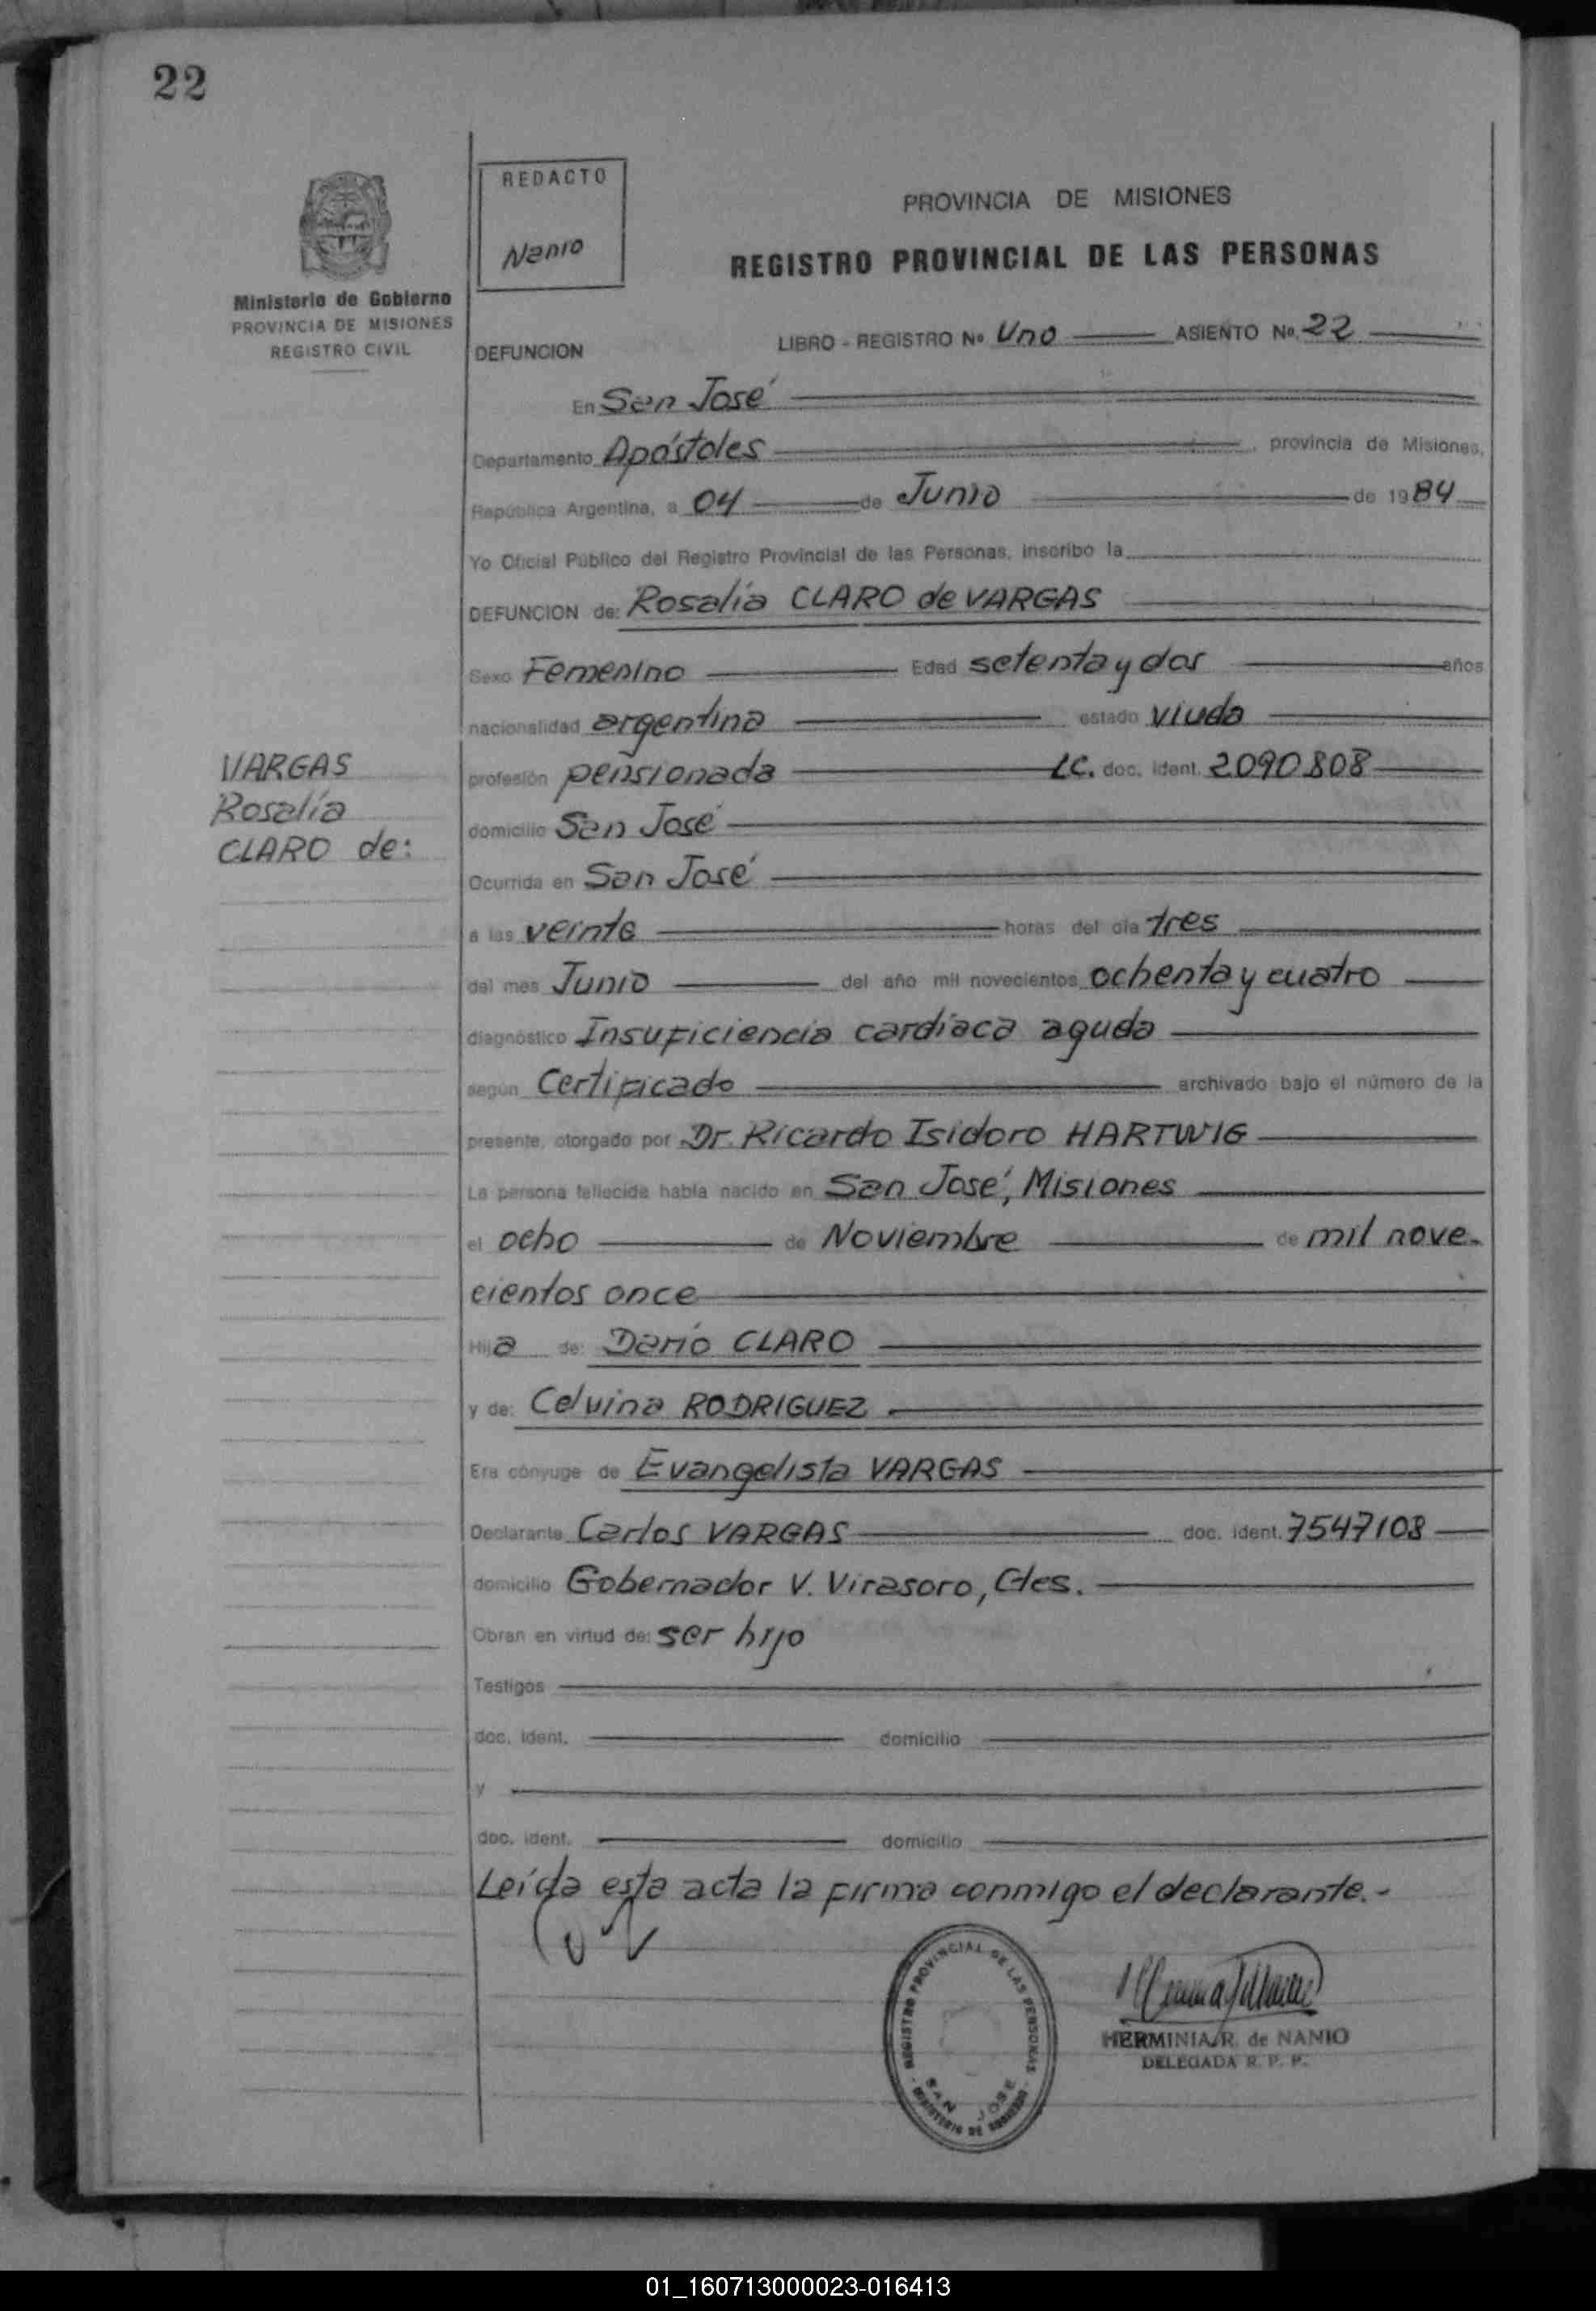 22
REDACTO
Nanio
PROVINCIA DE MISIONES
REGISTRO PROVINCIAL DE LAS PERSONAS
Ministerio de Gobierno
PROVINCIA DE MISIONES
REGISTRO CIVIL
DEFUNCION
LIBRO - REGISTRO Nº Uno ASIENTO Nº 22
En San José
Departamento Apóstoles, provincia de Misiones,
República Argentina, a 04 de Junio de 1984
Yo Oficial Público del Registro Provincial de las Personas, inscribo la
DEFUNCION de: Rosalía CLARO de VARGAS
Sexo Femenino Edad setenta y dos años
nacionalidad argentina estado viuda
VARGAS
Rosalía
CLARO de:
profesión pensionada LC. doc. ident. 2090808
domicilio San José
Ocurrida en San José
a las veinte horas del día tres
del mes Junio del año mil novecientos ochenta y cuatro
diagnóstico Insuficiencia cardíaca aguda
según Certificado archivado bajo el número de la
presente, otorgado por Dr. Ricardo Isidoro HARTWIG
La persona fallecida había nacido en San José, Misiones
el ocho de Noviembre de mil nove-
cientos once
Hija de: Darío CLARO
y de: Celvina RODRIGUEZ
Era cónyuge de Evangelista VARGAS
Declarante Carlos VARGAS doc. ident. 7547108
domicilio Gobernador V. Virasoro, Ctes.
Obran en virtud de: ser hijo
Testigos
doc. ident. domicilio
y
doc. ident. domicilio
Leída esta acta la firma conmigo el declarante.-
REGISTRO PROVINCIAL DE LAS PERSONAS
SAN JOSE
MINISTERIO DE GOBIERNO
HERMINIA R. de NANIO
DELEGADA R. P. P.
01_160713000023-016413